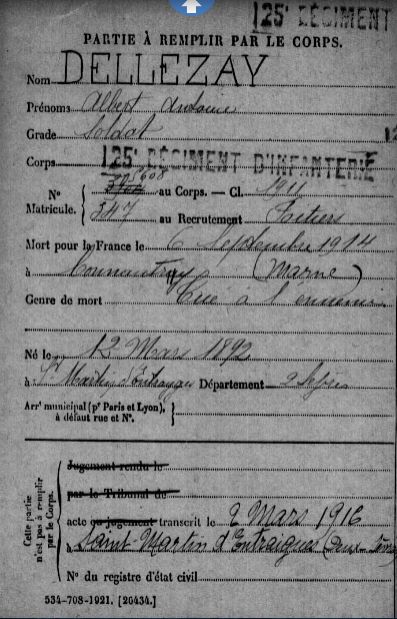 125e RÉGIMENT
PARTIE À REMPLIR PAR LE CORPS.
Nom DELLEZAY
Prénoms Albert Antoine
Grade Soldat
Corps 125e RÉGIMENT D'INFANTERIE
N° Matricule. { 5608 au Corps. — Cl. 1911
547 au Recrutement Poitiers
Mort pour la France le 6 Septembre 1914
à Connantray (Marne)
Genre de mort Tué à l'ennemi
Né le 12 Mars 1892
à St Martin d'Entraigues Département 2 Sèvres
Arrt municipal (pr Paris et Lyon),
à défaut rue et N°.
Cette partie n'est pas à remplir par le Corps.
Jugement rendu le
par le Tribunal de
acte ou jugement transcrit le 2 Mars 1916
à Saint-Martin d'Entraigues (Deux-Sèvres
N° du registre d'état civil
534-708-1921. [26434.]